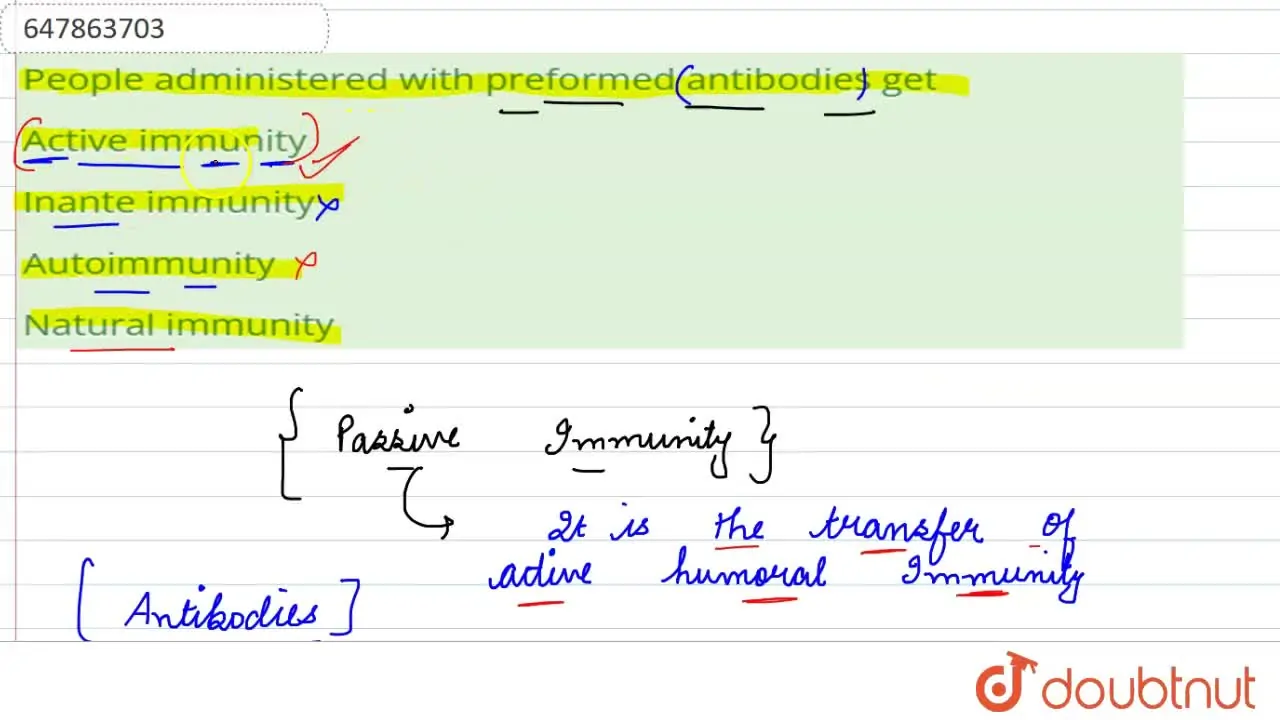 647863703
People administered with preformed (antibodies) get
(Active immunity)
Inante immunity
Autoimmunity
Natural immunity
{ Passive Immunity }
It is the transfer of
active humoral Immunity
[ Antibodies ]
doubtnut